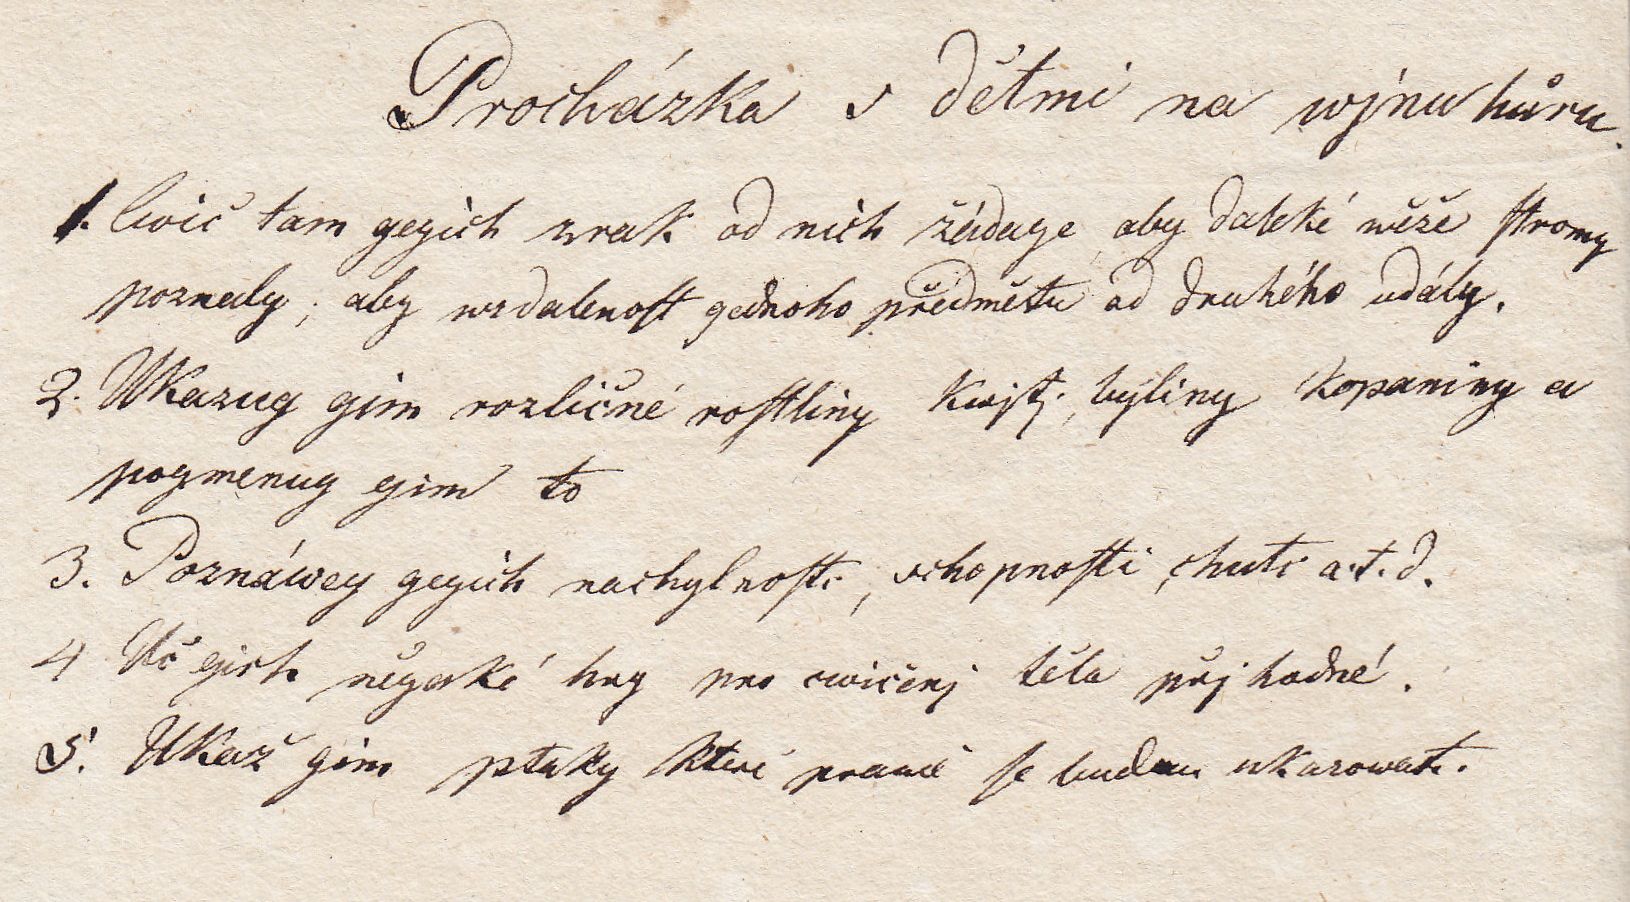 Procházka s dětmi na wjnu hůru.
1. Cwič tam gegich zrak od nich žádage aby daleké wěže stromy
poznaly, aby wzdalenost gednoho předmětu od druhého udály.
2. Ukazug gim rozličné rostliny kwjtj, byliny kopaniny a
pogmenug gim to
3. Poznáwey gegich nachylnosti, schopnosti, chuti a.t.d.
4 Uč gich něgaké hry pro cwičenj těla přjhodné.
5. Ukaž gim ptaky kteří prawě se budau ukazowati.